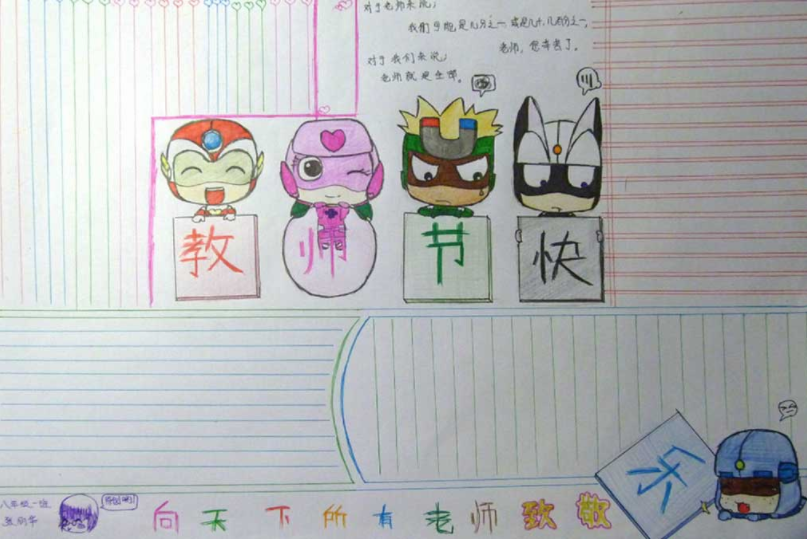 对于老师来说，
我们可能是几分之一或是几十、几百分之一，
老师，您辛苦了。
对于我们来说，
老师就是全部。
教 师 节 快
乐
八年级一班
向天下所有老师致敬